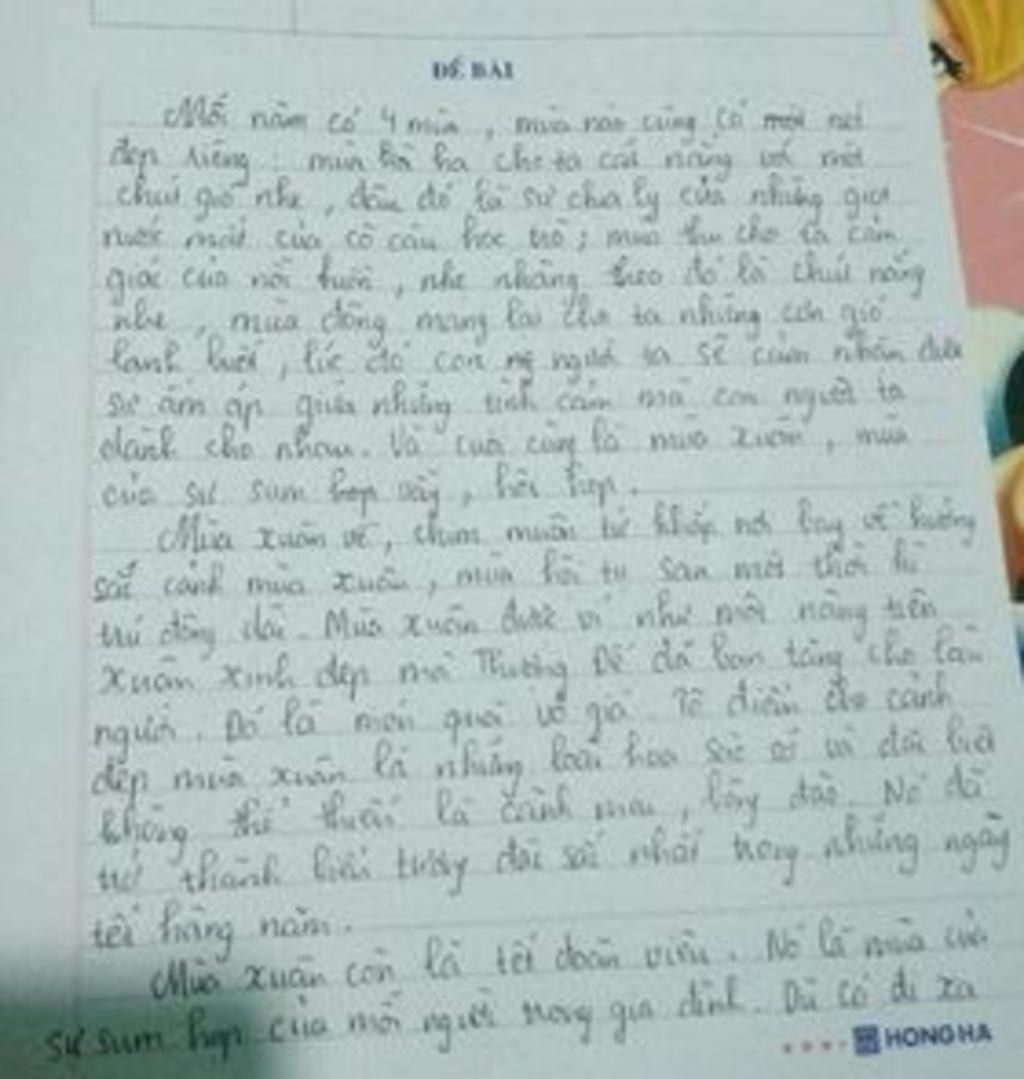 ĐỀ BÀI
Mỗi năm có 4 mùa, mùa nào cũng có một nét
đẹp riêng: mùa hè ta cho ta cái nắng với một
chút gió nhẹ, đâu đó là sự chia ly của những giọt
nước mắt của cô cậu học trò; mùa thu cho ta cảm
giác của nỗi buồn, nhẹ nhàng theo đó là chút nắng
nhẹ, mùa đông mang lại cho ta những cơn gió
lạnh buốt, lúc đó con người ta sẽ cảm nhận được
sự ấm áp giữa những tình cảm mà con người ta
dành cho nhau. Và cuối cùng là mùa xuân, mùa
của sự sum họp vầy, hội họp.
Mùa xuân về, chim muôn từ khắp nơi bay về hưởng
sắc cảnh mùa xuân, mùa hội tụ sau một thời kì
trú đông dài. Mùa xuân được ví như một nàng tiên
xuân xinh đẹp mà Thượng Đế đã ban tặng cho loài
người. Đó là món quà vô giá. Tô điểm cho cảnh
đẹp mùa xuân là những loài hoa sặc sỡ và đặc biệt
không thể thiếu là cành mai, bông đào. Nó đã
trở thành biểu tượng đặc sắc nhất trong những ngày
tết hằng năm.
Mùa xuân còn là tết đoàn viên. Nó là mùa của
sự sum họp của mỗi người trong gia đình. Dù có đi xa
HONG HA